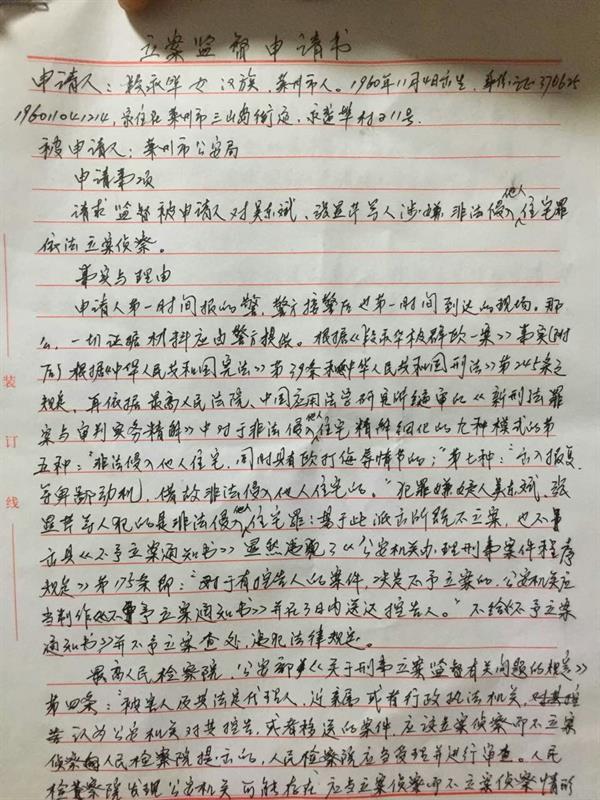 立案监督申请书
申请人：段永华 女 汉族 莱州市人。1960年11月4日出生，身份证370625
196011041214，家住在莱州市三山岛街道，永盛埠村211号
被申请人：莱州市公安局
申请事项
请求监督被申请人对吴东斌、张显芹等人涉嫌非法侵入他人住宅罪
依法立案侦察。
事实与理由
申请人第一时间报的警，警方接警后也第一时间到达的现场。那
么，一切证据材料应由警方提供。根据《段永华被群殴一案》事实(附
后)根据《中华人民共和国宪法》第39条和《中华人民共和国刑法》第245条之
规定，再依据最高人民法院、中国应用法学研究所编审的《新刑法罪
案与审判实务精解》中对于非法侵入他人住宅精解细化的九种模式的第
五种："非法侵入他人住宅，同时具有殴打侮辱情节的；"第七种："出入报复
等卑鄙动机，借故非法侵入他人住宅的。"犯罪嫌疑人吴东斌，张
显芹等人犯的是非法侵入他人住宅罪；基于此派出所既不立案，也不
出具《不予立案通知书》显然违犯了《公安机关办理刑事案件程序
规定》第175条即："对于有控告人的案件，决定不予立案的，公安机关应
当制作《不予立案通知书》并在3日内送达控告人。"不给《不予立案
通知书》并不予立案查处，违犯法律规定。
最高人民检察院，公安部《关于刑事立案监督有关问题的规定》
第四条："被害人及其法定代理人，近亲属或者行政执法机关，
认为公安机关对其控告，或者移送的案件，应该立案侦察而不立案
侦察向人民检察院提出的，人民检察院应当受理并进行审查。人民
检察院发现公安机关可能存在应当立案侦察而不立案侦察情形
装
订
线